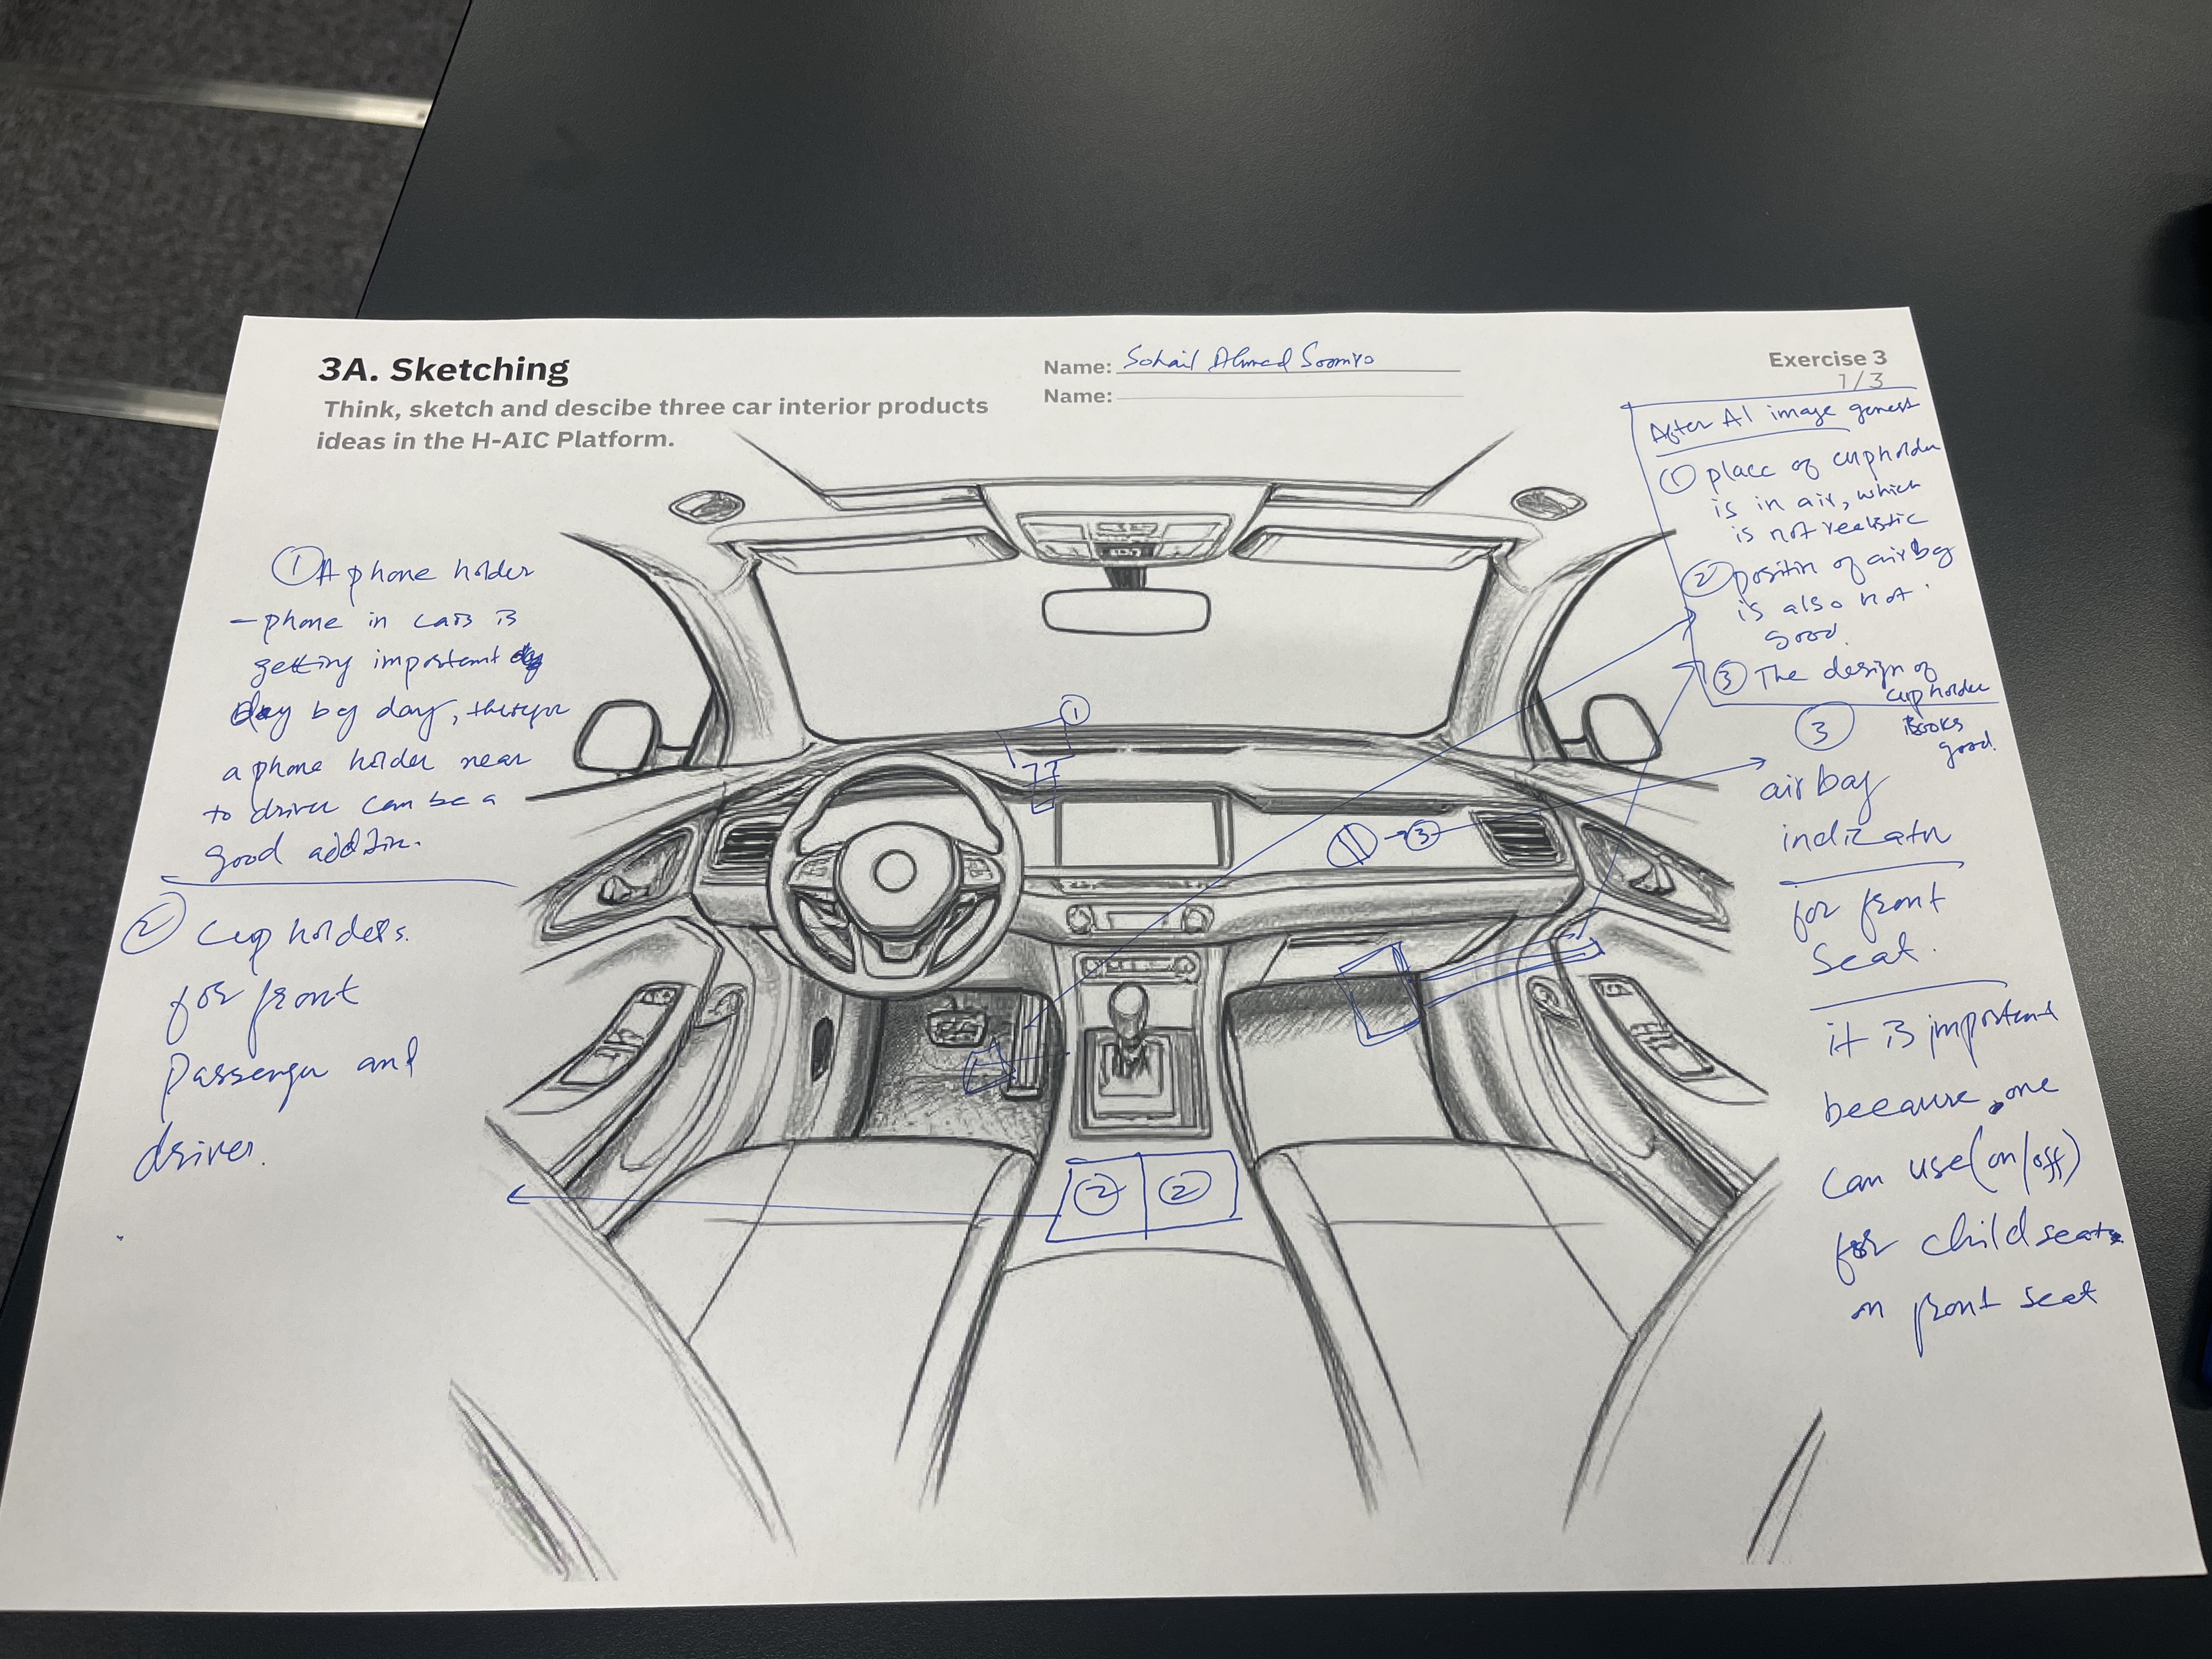 3A. Sketching
Think, sketch and descibe three car interior products
ideas in the H-AIC Platform.
Name: Sohail Ahmed Soomro
Name:
Exercise 3
1/3
① A phone holder
- phone in cars is
getting important
day by day, 
a phone holder near
to driver can be a
good addition.
② Cup holders.
for front
Passenger and
driver.
①
② ②
→ ③
After AI image generat
① place of cupholder
is in air, which
is not realistic
② position of airbag
is also not
good.
③ The design of
cupholder
looks
good.
③
airbag
indicator
for front
seat.
it is important
because, one
can use (on/off)
for child seats
on front seat